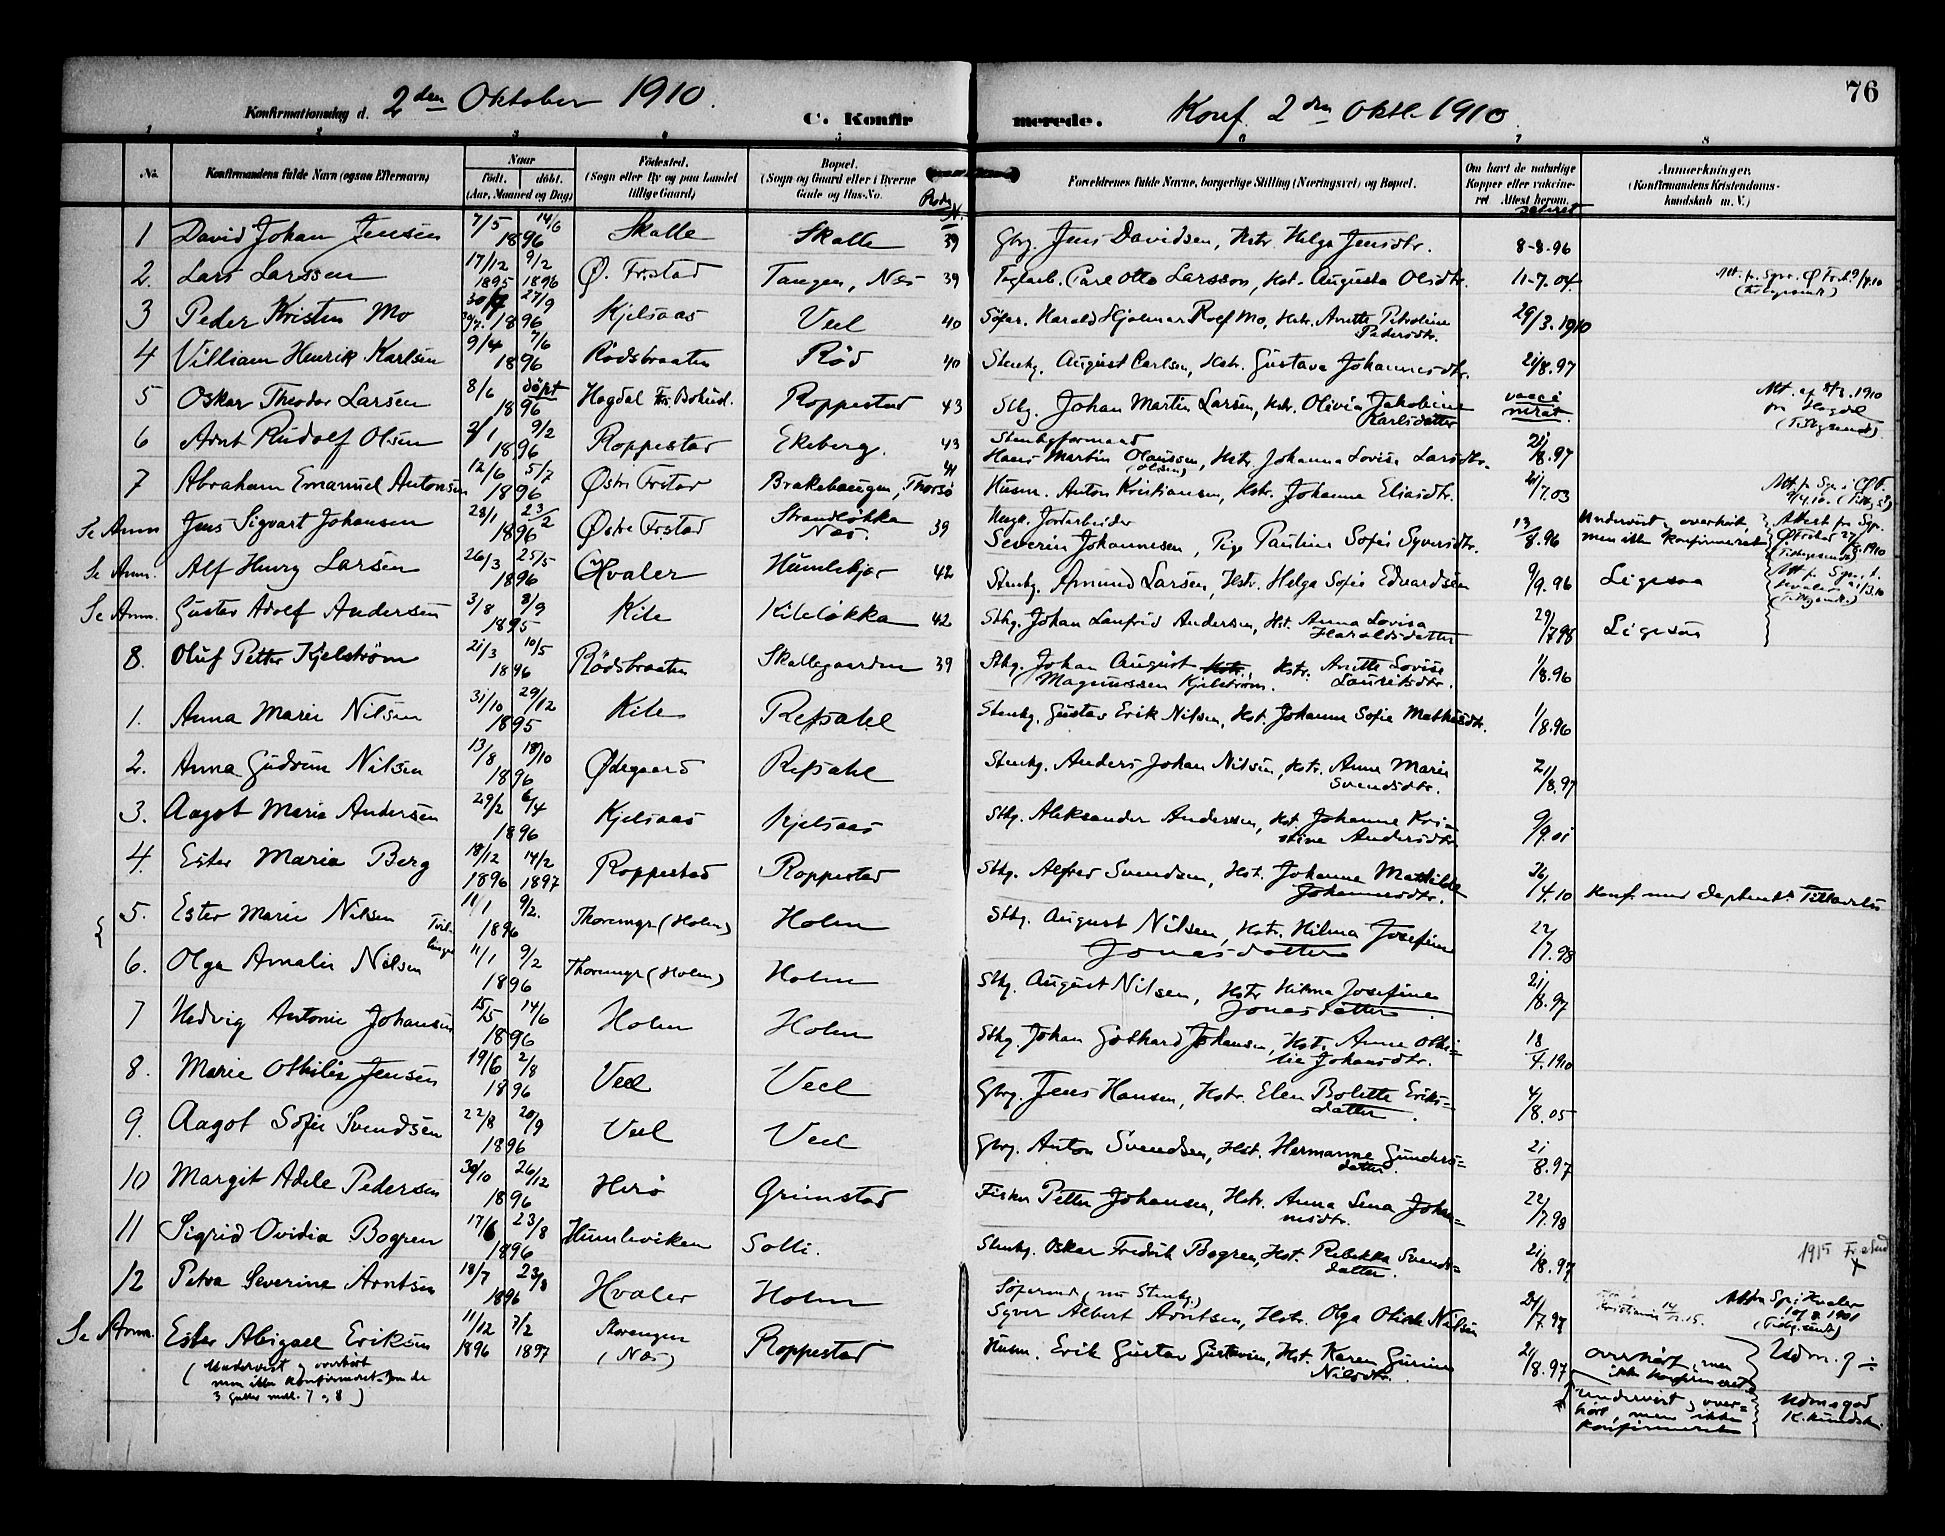 76
Konfirmationsdag d. 2den Oktober 1910. C. Konfirmerede. Konf. 2den Oktb. 1910
1 2 3 4 5 6 7 8
No. Konfirmandens fulde Navn (ogsaa Efternavn) Naar født. døbt. (Aar, Maaned og Dag) Fødested. (Sogn eller By og paa Landet tillige Gaard) Bopæl. (Sogn og Gaard eller i Byerne Gade og Hus-No.) Forældrenes fulde Navne, borgerlige Stilling (Næringsvei) og Bopæl. Om havt de naturlige Kopper eller vakcineret Attest herom. Anmærkninger. (Konfirmandens Kristendomskundskab m. V.)
1 David Johan Jensen 7/5 14/6 1896 Skalle Skalle 39 Gbrg. Jens Davidsen, Hstr. Helga Jensdtr. 8-8.96
2. Lars Larssen 17/12 1895 9/2 1896 Ø. Frstad Tangen, Næs 39 Teglarb. Carl Otto Larsson, Hst. Augusta Olsdtr. 11-7.04
3 Peder Kristen Mo 27/9 1896 Kjelsaas Veel 40 Søfar. Harald Hjalmar Rolf Mo, Hstr. Anette Petroline Pedersdtr. 29/3.1910
4 Villiam Henrik Karlsen 9/4 7/6 1896 Rødsbraaten Rød 40 Stenhg. August Carlsen, Hstr. Gustava Johannesdtr. 21/8.97
5 Oskar Theodor Larsen 8/6 døpt 1896 Hogdal Roppestad 43 Sthg. Johan Martin Larsen, Hstr. Olivia Jakobine Karlsdatter vaccinerat Att. af 1910 fra Hogdal
6 Arnt Rudolf Olsen 2/1 9/2 1896 Roppestad Ekeberg. 43 Stenhgformand Hans Martin Olaussen (Olsen), Hstr. Johanna Lovise Larsdtr. 21/8.97
7 Abraham Emanuel Antonsen 12/6 5/7 1896 Østre Frstad Brakehaugen, Thorsø 41 Husm. Anton Kristiansen, Hstr. Johanne Eliasdtr. 21/7.03
Se Anm Jens Sigvart Johansen 28/1 23/2 1896 Østre Frstad Strandløkka Næs. 39 Ungk. Jordarbeider Severin Johannesen, Pige Pauline Sofie Syversdtr. 13/8.96 Undervist, overhørt, men ikke konfirmeret
Se Anm. Alf Henry Larsen 26/3 25/5 1896 Hvaler Humlekjær 42 Stenhg. Amund Larsen, Hstr. Helga Sofie Edvardsen 9/9.96 Ligesaa
Se Anm. Gustav Adolf Andersen 3/8 8/9 1895 Kile Kileløkka 42 Sthg. Johan Lanfrid Andersen, Hst. Anna Lovisa Haraldsdatter 29/7.98 Ligesaa
8. Oluf Petter Kjelstrøm 21/3 10/5 1896 Rødsbraaten Skallegaarden 39 Sthg. Johan August Magnussen Kjelstrøm. Hstr. Anette Lovise Lauritsdtr. 1/8.96
1. Anna Marie Nilsen 31/10 29/12 1895 Kile Refsahl Stenhg. Gustav Erik Nilsen, Hst. Johanne Sofie Mathisdtr. 1/8.96
2. Anna Gudrun Nilsen 13/8 18/10 1896 Ødegaard Refsahl Stenhg. Anders Johan Nilsen, Hst. Anne Marie Svendsdtr. 21/8.97
3. Aagot Marie Andersen 29/2 6/4 1896 Kjelsaas Kjelsaas Sthg. Aleksander Anderssen, Hst. Johanne Kristine Andersdtr. 9/9.01
4. Ester Maria Berg 18/12 1896 14/2 1897 Roppestad Roppestad Sthg. Alfred Svendsen, Hst. Johanne Mathilde Johannesdtr. 26/4.10 Konf. med Deptmts Tilladelse
5. Ester Marie Nilsen Tvillinger 11/1 9/2. 1896 (Holm) Holm Sthg. August Nilsen, Hstr. Hilma Josefine Jonasdatter 22/7.98
6. Olga Amalie Nilsen 11/1 9/2 1896 (Holm) Holm Sthg. August Nilsen, Hstr. Hilma Josefine Jonasdatter. 21/8.97
7 Hedvig Antonie Johansen 15/5 14/6 1896 Holm Holm Sthg. Johan Gothard Johansen, Hst. Anne Othilie Johansdtr. 18/4.1910
8. Marie Othilie Jensen 19/6 2/8 1896 Veel Veel Gbrg. Jens Hansen, Hstr. Elen Bolette Eriksdatter. 4/8.05
9. Aagot Sofie Svendsen 22/8 20/9 1896 Veel Veel Gbrg. Anton Svendsen, Hst. Hermanne Gundersdatter. 21/8.97
10 Margit Adele Pedersen 30/10 26/12 1896 Herø Grimstad Fisker Petter Johansen, Hstr. Anna Lena Johannesdtr. 22/7.98
11 Sigrid Ovidia Bogren 17/6 23/8 1896 Humleviken Solli. Stenhg. Oskar Fredrik Bogren, Hst. Rebekka Svendsdatter. 21/8.97 1915
12 Petra Severine Arntsen 18/7 23/8 1896 Hvaler Holm Søfarend. (nu Stenhg.) Syver Albert Arntsen, Hstr. Olga Otilie Nilsen 21/7.97
Se Anm. Ester Abigael Eriksen 11/12 1896 7/2 1897 Storengen (Næs) Roppestad Husm. Erik Gustav Gustavsen, Hst. Karen Gurine Nilsdtr. 21/8.97 overhørt, men ikke konfirmeret
(Undervist og overhørt men ikke konfirmeret som de 3 gutter mell. 7 og 8)
undervist og overhørt, men ikke konfirmeret